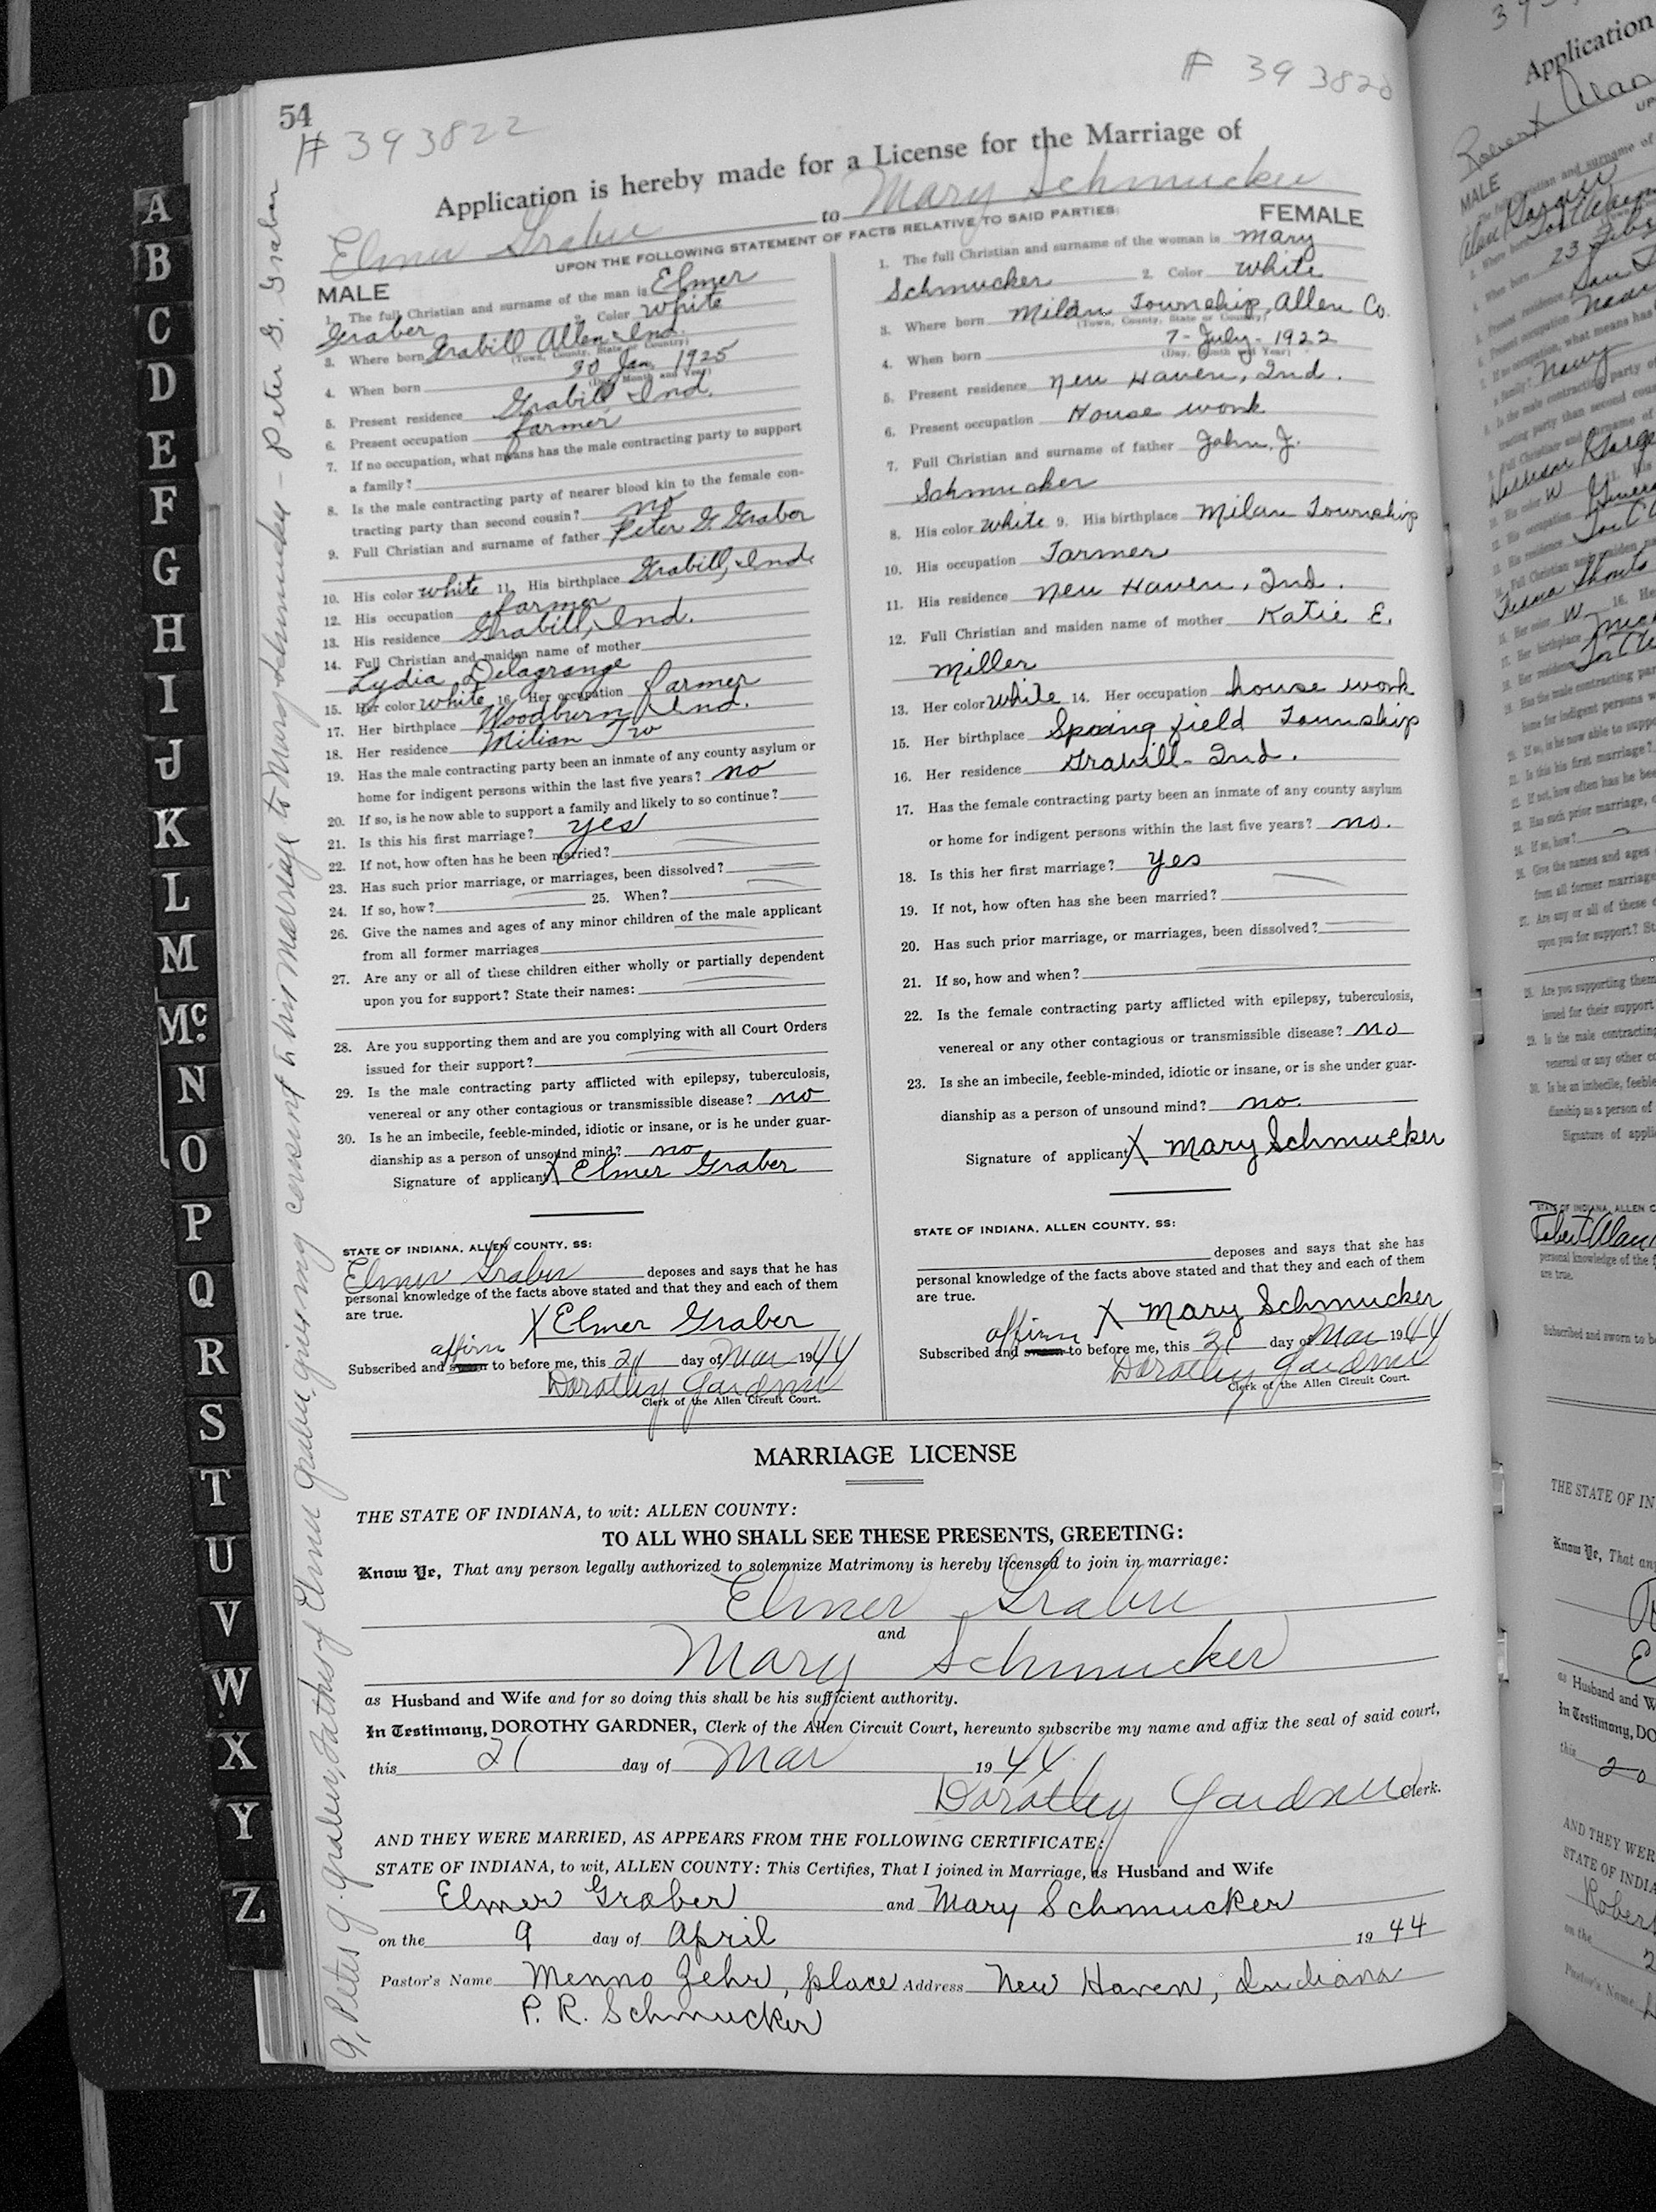 54
# 393822
# 393820
Application is hereby made for a License for the Marriage of
Elmer Graber to Mary Schmucker
UPON THE FOLLOWING STATEMENT OF FACTS RELATIVE TO SAID PARTIES:
MALE
1. The full Christian and surname of the man is Elmer
Graber 2. Color White
3. Where born Grabill Allen Ind.
(Town, County, State or Country)
4. When born 30 Jan 1925
(Day, Month and Year)
5. Present residence Grabill, Ind.
6. Present occupation farmer
7. If no occupation, what means has the male contracting party to support
a family?
8. Is the male contracting party of nearer blood kin to the female con-
tracting party than second cousin? no
9. Full Christian and surname of father Peter G Graber
10. His color white 11. His birthplace Grabill, Ind.
12. His occupation farmer
13. His residence Grabill, Ind.
14. Full Christian and maiden name of mother
Lydia Delagrange
15. Her color white 16. Her occupation farmer
17. Her birthplace Woodburn, Ind.
18. Her residence Milian Tw
19. Has the male contracting party been an inmate of any county asylum or
home for indigent persons within the last five years? no
20. If so, is he now able to support a family and likely to so continue?
21. Is this his first marriage? yes
22. If not, how often has he been married?
23. Has such prior marriage, or marriages, been dissolved?
24. If so, how? 25. When?
26. Give the names and ages of any minor children of the male applicant
from all former marriages
27. Are any or all of these children either wholly or partially dependent
upon you for support? State their names:
28. Are you supporting them and are you complying with all Court Orders
issued for their support?
29. Is the male contracting party afflicted with epilepsy, tuberculosis,
venereal or any other contagious or transmissible disease? no
30. Is he an imbecile, feeble-minded, idiotic or insane, or is he under guar-
dianship as a person of unsound mind? no
Signature of applicant X Elmer Graber
STATE OF INDIANA, ALLEN COUNTY, SS:
Elmer Graber deposes and says that he has
personal knowledge of the facts above stated and that they and each of them
are true.
X Elmer Graber
affirm
Subscribed and sworn to before me, this 21 day of Mar 1944
Dorothy Gardner
Clerk of the Allen Circuit Court.
FEMALE
1. The full Christian and surname of the woman is Mary
Schmucker 2. Color White
3. Where born Milan Township, Allen Co.
(Town, County, State or Country)
4. When born 7-July-1922
(Day, Month and Year)
5. Present residence New Haven, Ind.
6. Present occupation House work
7. Full Christian and surname of father John. J.
Schmucker
8. His color White 9. His birthplace Milan Township
10. His occupation Farmer
11. His residence New Haven, Ind.
12. Full Christian and maiden name of mother Katie E.
Miller
13. Her color White 14. Her occupation house work
15. Her birthplace Spring field Township
16. Her residence Grabill-Ind.
17. Has the female contracting party been an inmate of any county asylum
or home for indigent persons within the last five years? no.
18. Is this her first marriage? yes
19. If not, how often has she been married?
20. Has such prior marriage, or marriages, been dissolved?
21. If so, how and when?
22. Is the female contracting party afflicted with epilepsy, tuberculosis,
venereal or any other contagious or transmissible disease? no
23. Is she an imbecile, feeble-minded, idiotic or insane, or is she under guar-
dianship as a person of unsound mind? no.
Signature of applicant X Mary Schmucker
STATE OF INDIANA, ALLEN COUNTY, SS:
deposes and says that she has
personal knowledge of the facts above stated and that they and each of them
are true.
X Mary Schmucker
affirm
Subscribed and sworn to before me, this 21 day of Mar 1944
Dorothy Gardner
Clerk of the Allen Circuit Court.
MARRIAGE LICENSE
THE STATE OF INDIANA, to wit: ALLEN COUNTY:
TO ALL WHO SHALL SEE THESE PRESENTS, GREETING:
Know Ye, That any person legally authorized to solemnize Matrimony is hereby licensed to join in marriage:
Elmer Graber
and
Mary Schmucker
as Husband and Wife and for so doing this shall be his sufficient authority.
In Testimony, DOROTHY GARDNER, Clerk of the Allen Circuit Court, hereunto subscribe my name and affix the seal of said court,
this 21 day of Mar 1944
Dorothy Gardner Clerk.
AND THEY WERE MARRIED, AS APPEARS FROM THE FOLLOWING CERTIFICATE:
STATE OF INDIANA, to wit, ALLEN COUNTY: This Certifies, That I joined in Marriage, as Husband and Wife
Elmer Graber and Mary Schmucker
on the 9 day of April 1944
Pastor's Name Menno Zehr, place Address New Haven, Indiana
P. R. Schmucker
I, Peter G. Graber, father of Elmer Graber, give my consent to his marriage to Mary Schmucker - Peter G. Graber
A
B
C
D
E
F
G
H
I
J
K
L
M
Mc.
N
O
P
Q
R
S
T
U
V
W
X
Y
Z
Application
MALE